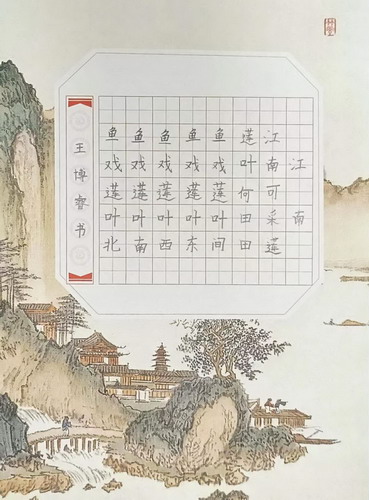 江南
江南可采莲
莲叶何田田
鱼戏莲叶间
鱼戏莲叶东
鱼戏莲叶西
鱼戏莲叶南
鱼戏莲叶北
王博睿书